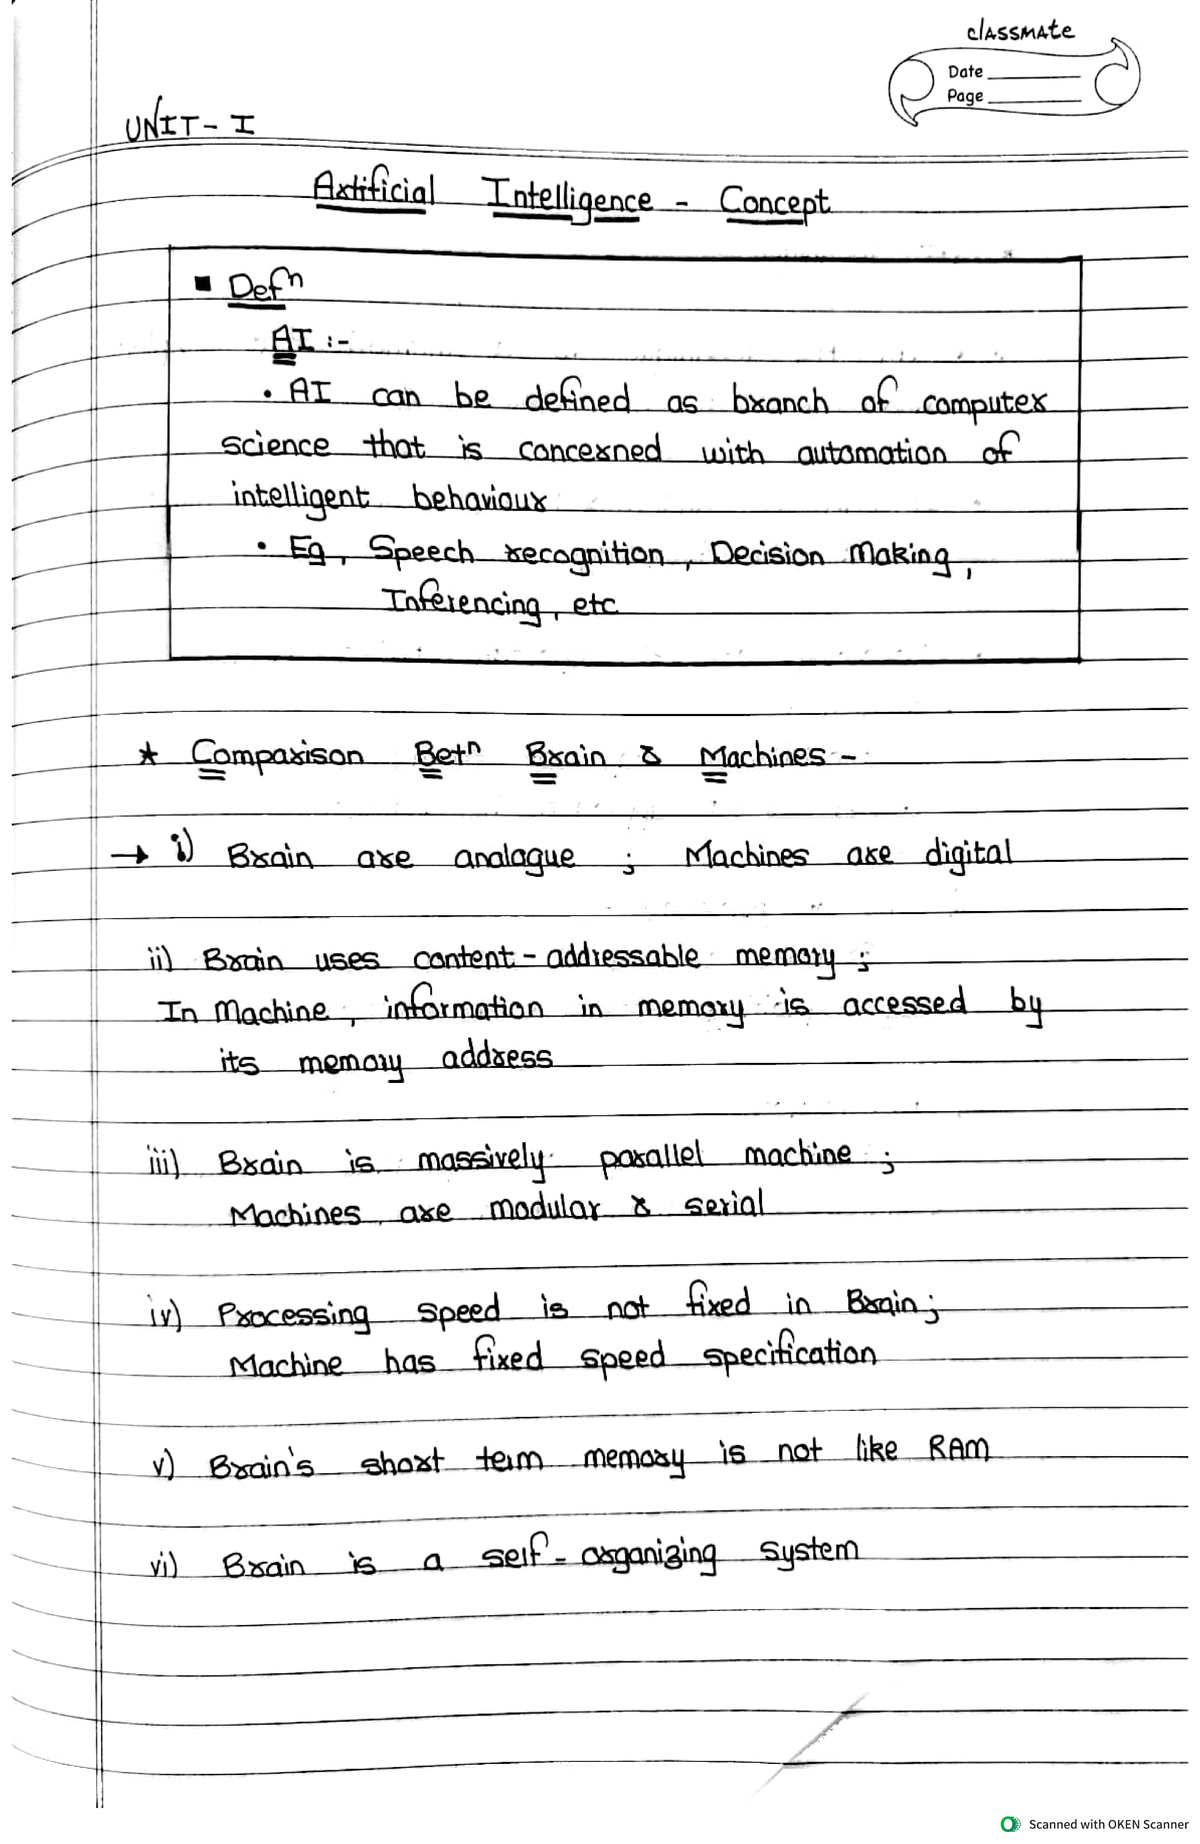 classmate
Date
Page
UNIT - I
Artificial Intelligence - Concept
▪ Defⁿ
AI :-
• AI can be defined as branch of computer
science that is concerned with automation of
intelligent behaviour
• Eg, Speech recognition, Decision Making,
Inferencing, etc
* Comparison Betⁿ Brain & Machines -
→ i) Brain are analogue ; Machines are digital
ii) Brain uses content - addressable memory ;
In Machine, information in memory is accessed by
its memory address
iii) Brain is massively parallel machine ;
Machines are modular & serial
iv) Processing speed is not fixed in Brain;
Machine has fixed speed specification
v) Brain's short term memory is not like RAM
vi) Brain is a self - organizing system
Scanned with OKEN Scanner